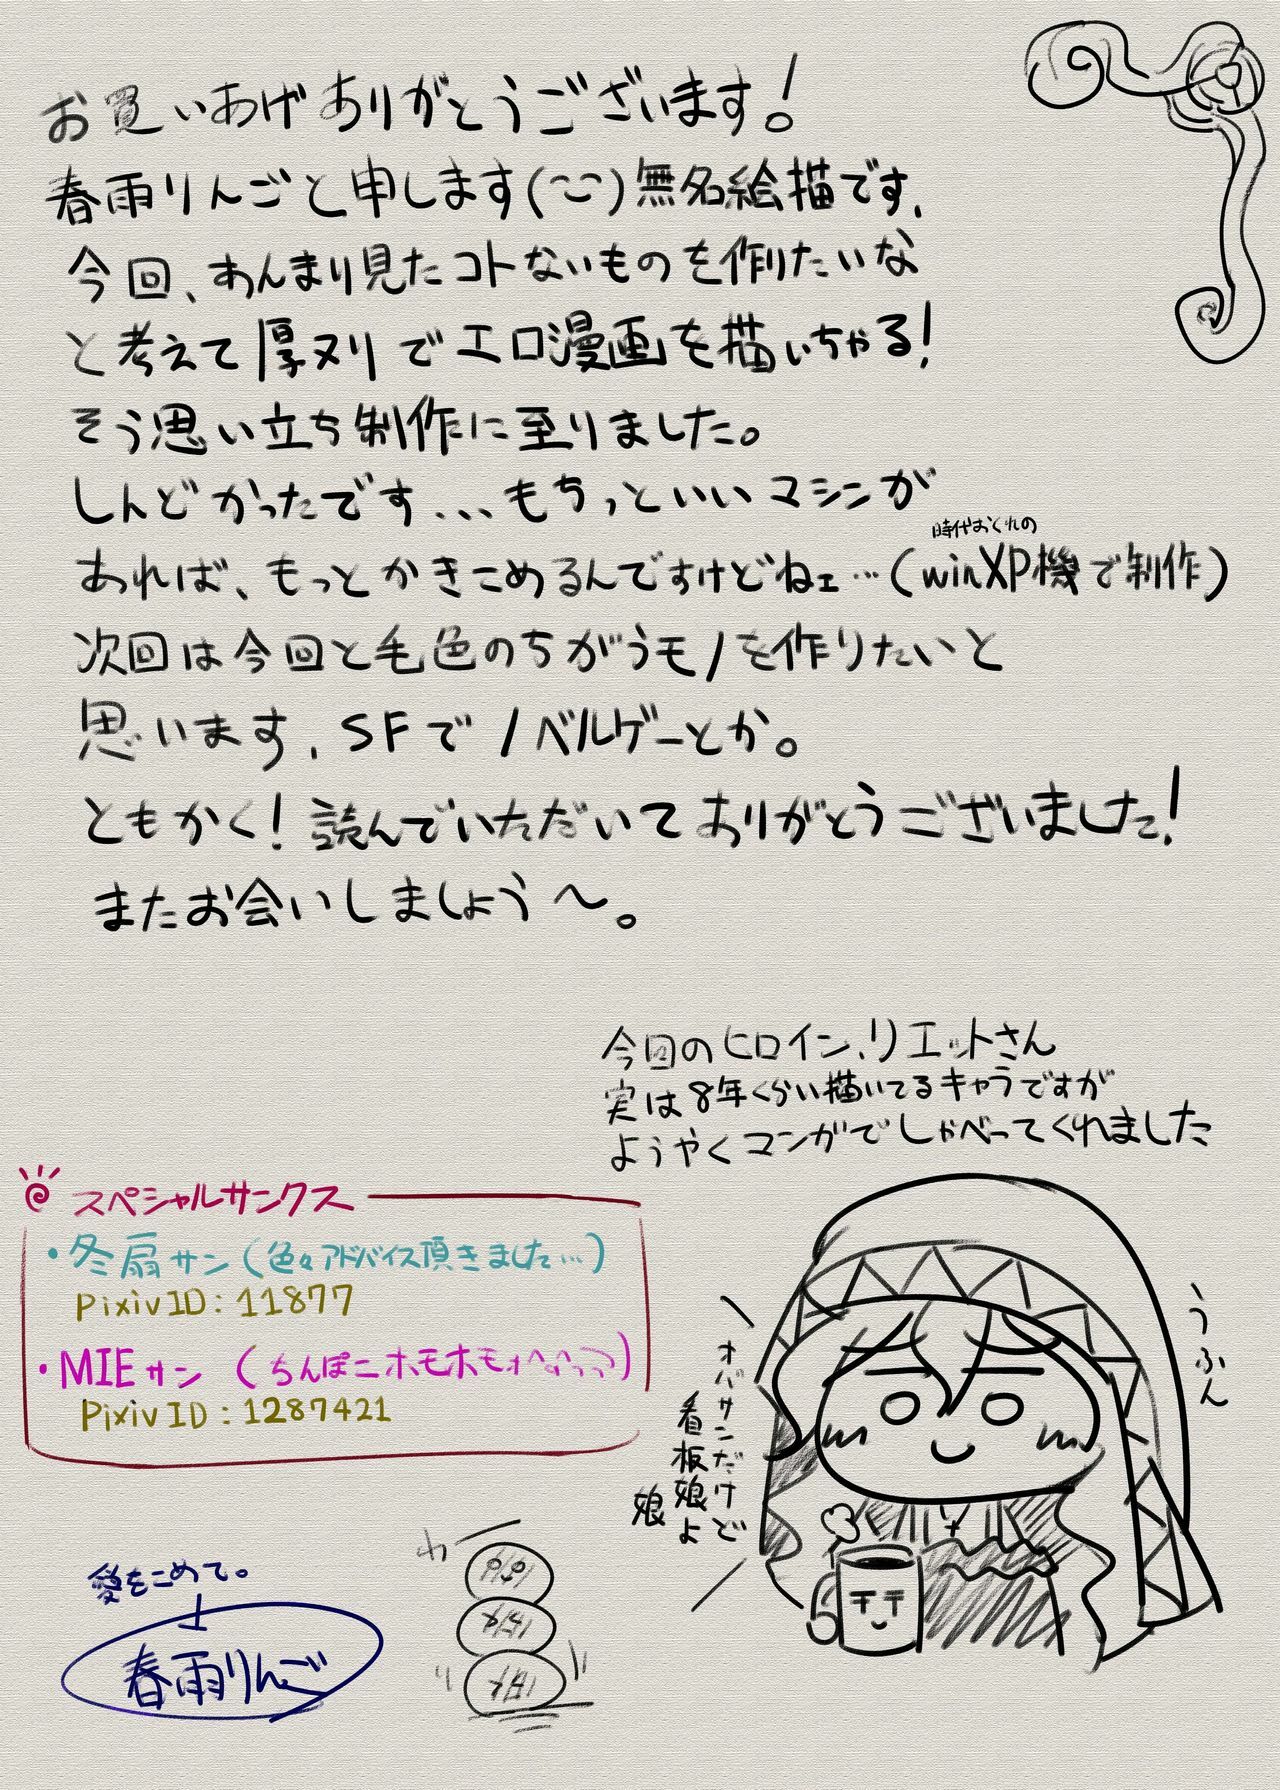 お買いあげありがとうございます!
春雨りんごと申します(~~)無名絵描です、
今回、あんまり見たコトないものを作りたいな
と考えて厚ヌリでエロ漫画を描いちゃる!
そう思い立ち制作に至りました。
しんどかったです...もちっといいマシンが
あれば、もっとかきこめるんですけどねェ…(winXP機で制作)
時代おくれの
次回は今回と毛色のちがうモノを作りたいと
思います、SFでノベルゲーとか。
ともかく!読んでいただいてありがとうございました!
またお会いしましょう〜。
今回のヒロイン、リエットさん
実は8年くらい描いてるキャラですが
ようやくマンガでしゃべってくれました
スペシャルサンクス
・冬扇サン(色々アドバイス頂きました…)
pixivID:11877
・MIEサン(ちんぽこホモホモ
PixivID:1287421
うふん
オバサンだけど
看板娘よ
娘
愛をこめて。
春雨りんご